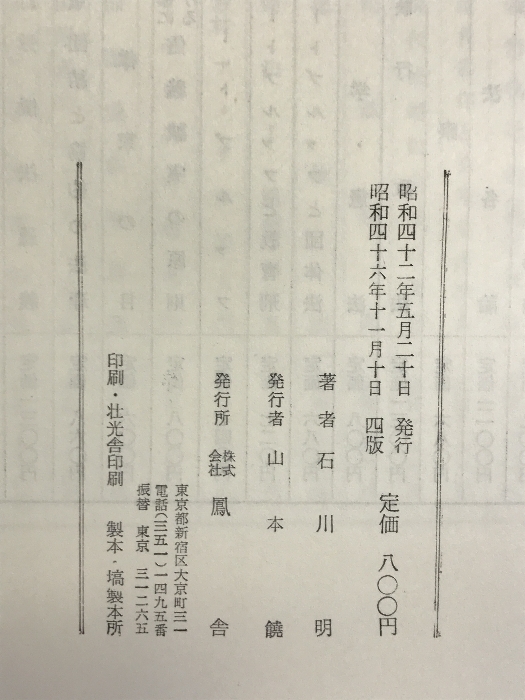 昭和四十二年五月二十日　発行
昭和四十六年十一月十日　四版
定価　八〇〇円
著者　石川　明
発行者　山本　饒
発行所　株式会社　鳳舎
東京都新宿区大京町三一
電話(三五一)一四九五番
振替　東京　三一二六五
印刷・壮光舎印刷　製本・塙製本所